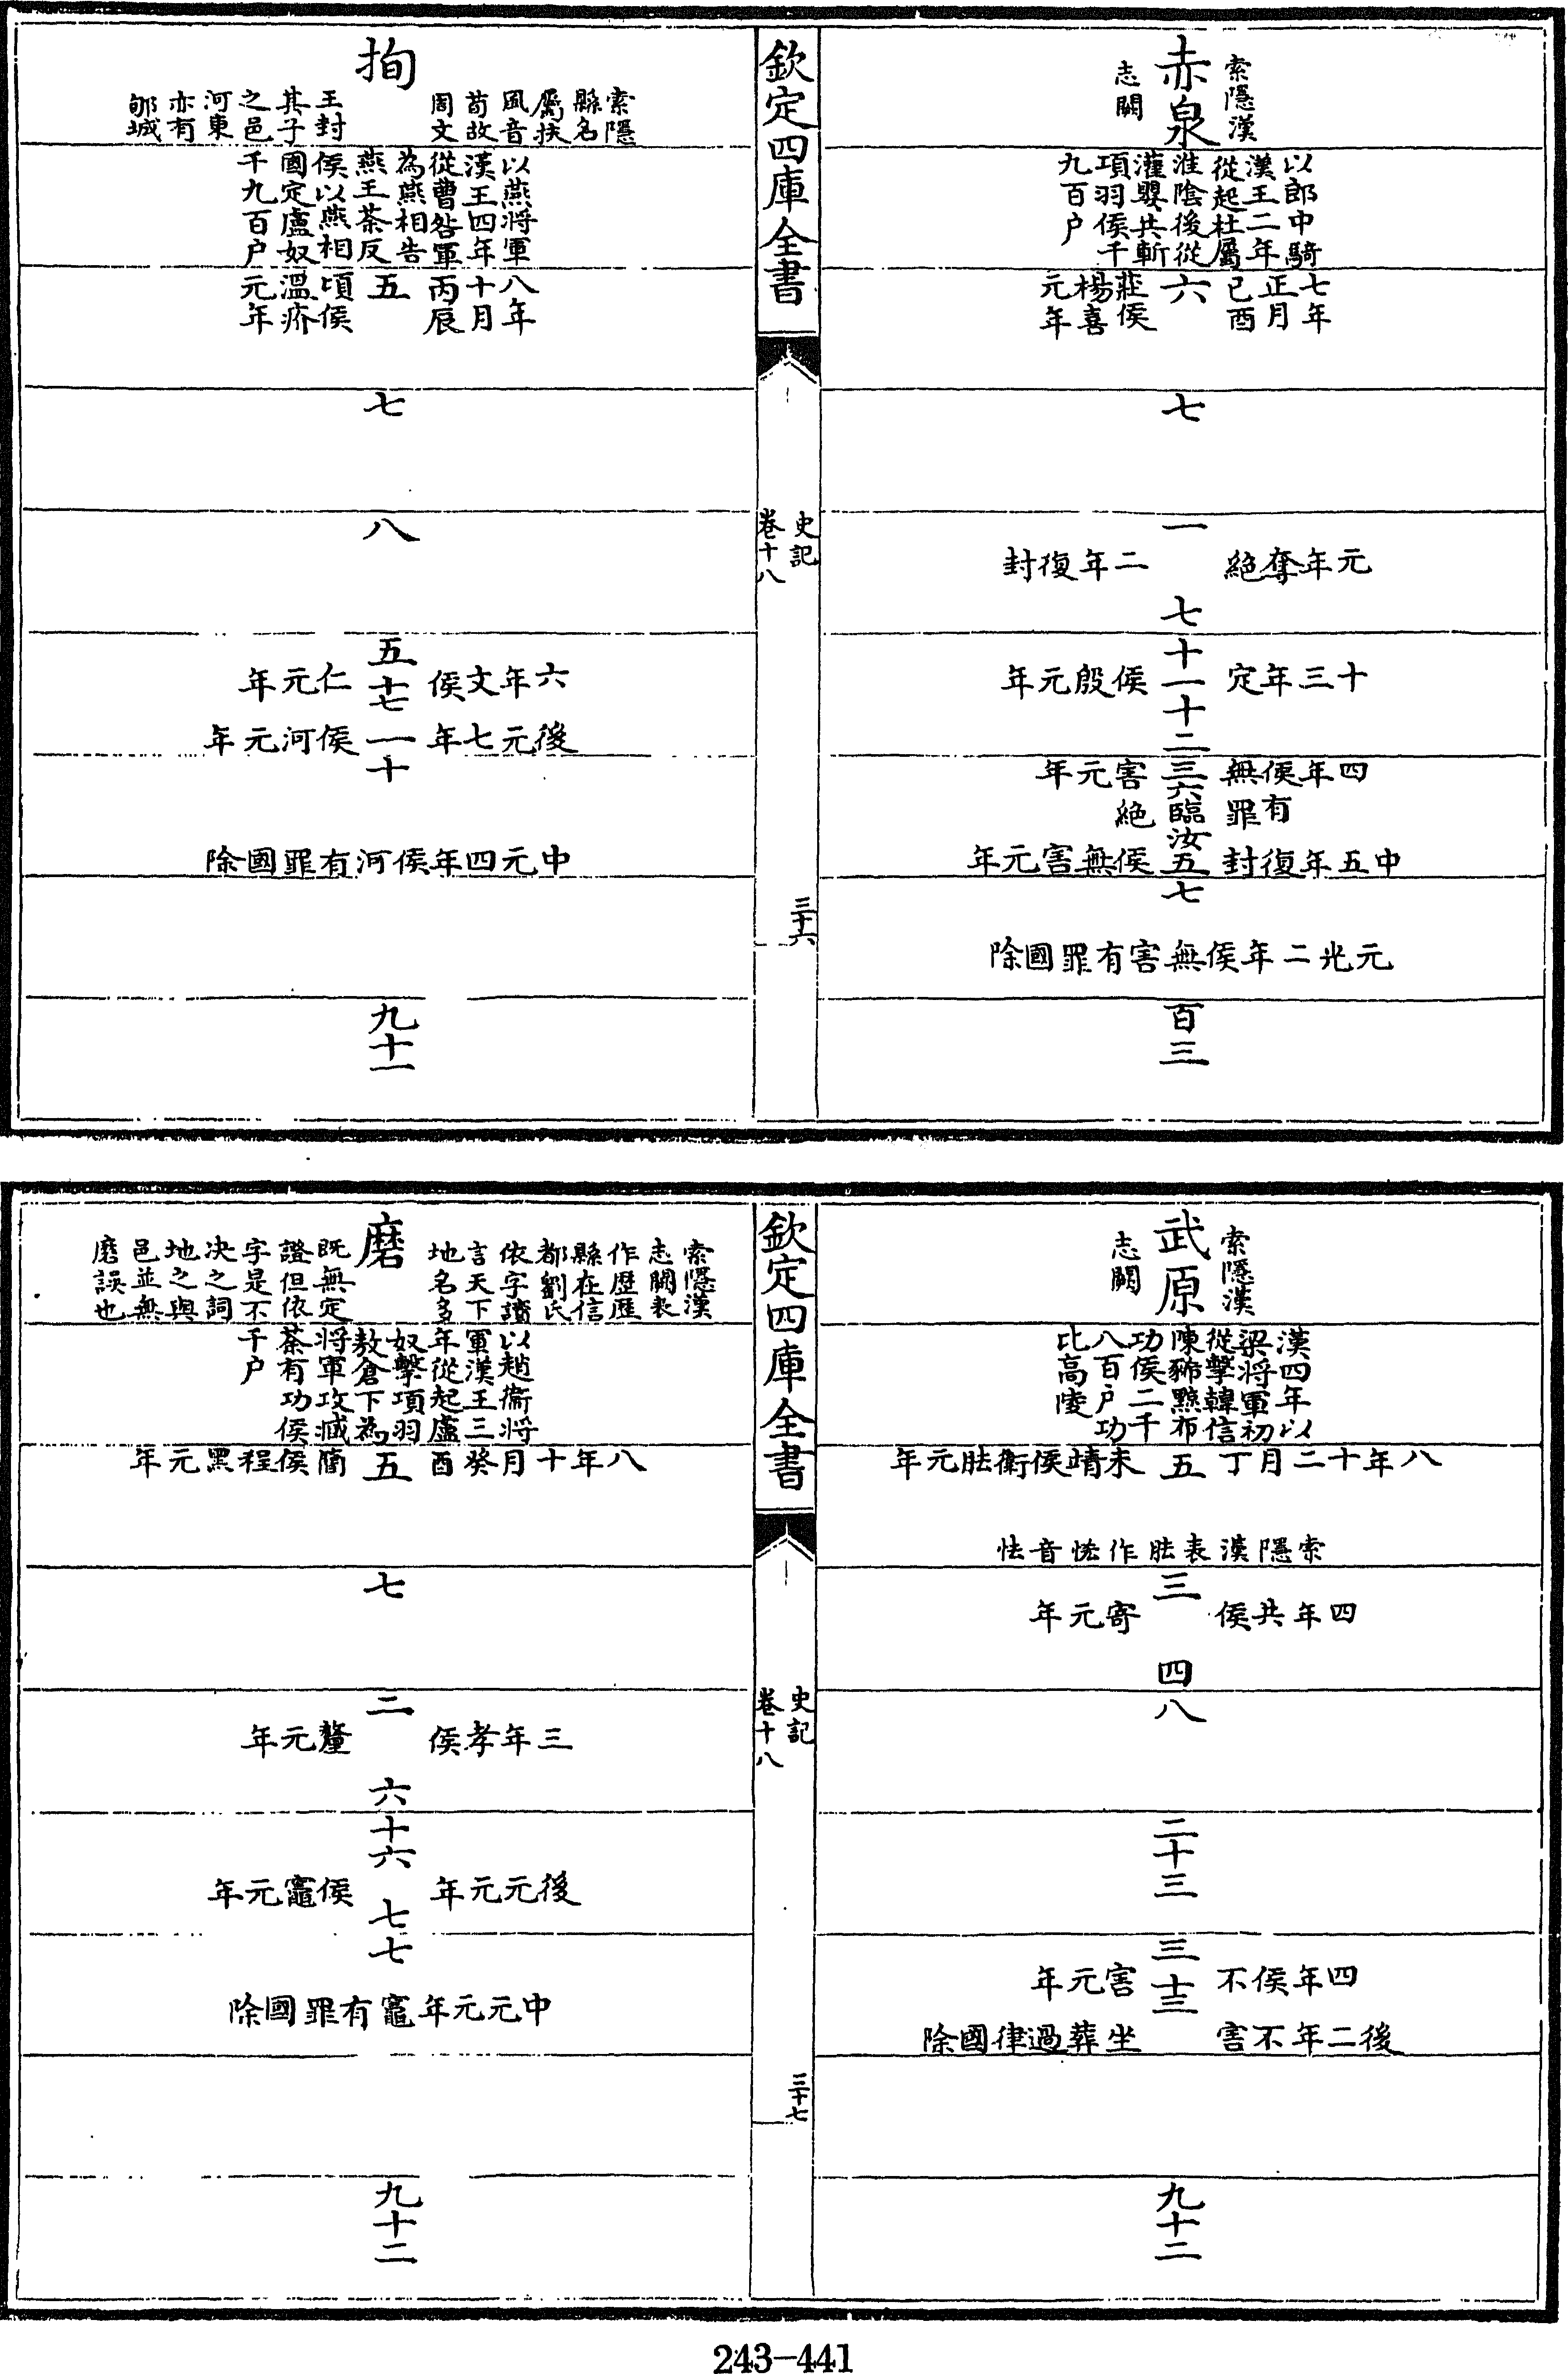 赤泉
索隱漢志闕
以郎中騎漢王二年從起杜屬淮陰後從灌嬰共斬項羽侯千九百户
七年正月己酉
六
莊侯楊喜元年
七
一
元年奪絕
二年復封
七
十一
十三年定侯殷元年
十二
三
四年侯無害元年
有罪絕
六
臨汝
五
中五年復封侯無害元年
七
元光二年侯無害有罪國除
百三
欽定四庫全書
史記
卷十八
三十六
拘
索隱縣名屬扶風音荀故周文王封其子之邑河東亦有郇城
以燕將軍漢王四年從曹咎軍為燕相告燕王荼反侯以燕相國定盧奴千九百户
八年十月丙辰
五
頃侯溫疥元年
七
八
五
六年文侯仁元年
十七
後元七年侯河元年
一
十
中元四年侯河有罪國除
九十一
武原
索隱漢志闕
漢四年以梁將軍初從擊韓信陳豨黥布功侯二千八百户功比高陵
八年十二月丁未靖侯衞胠元年
五
索隱漢表胠作怯音怯
三
四年共侯寄元年
四
八
二十三
三
四年侯不害元年
十三
後二年不害坐葬過律國除
九十二
欽定四庫全書
史記
卷十八
三十七
磨
索隱漢志闕表作歷歷縣在信都劉氏依字讀言天下地名多既無定證但依字是不決之詞地之與邑並無磨誤也
以趙衞將軍漢王三年從起盧奴擊項羽敖倉下為將軍攻臧荼有功侯千户
八年十月癸酉
五
簡侯程黑元年
七
二
三年孝侯釐元年
六
十六
後元元年侯竈元年
七
七
中元元年竈有罪國除
九十二
243-441